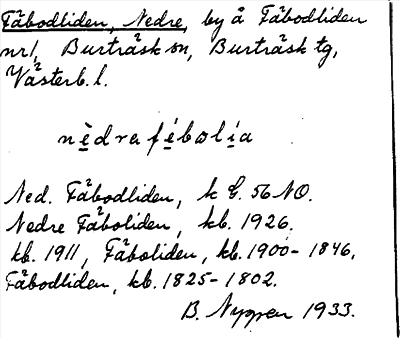 Fäbodliden, Nedre, by å Fäbodliden
nr 1, Burträsk sn, Burträsk tg,
Västerb. l.
nèdrafébωlìa
Ned. Fäbodliden, k G. 56 NO.
Nedre Fäboliden, kb. 1926.
kb. 1911, Fäboliden, kb. 1900-1846,
Fäbodliden, kb. 1825-1802.
B. 1933.